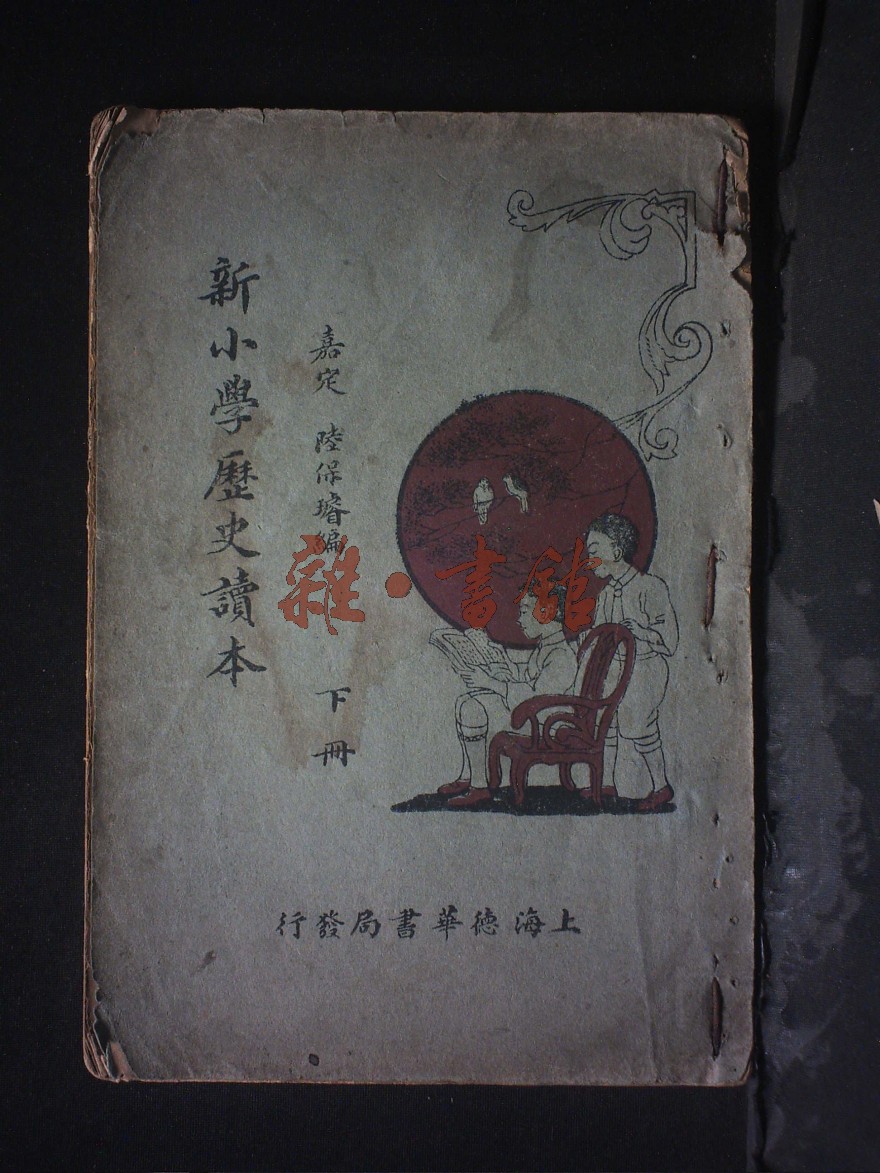 新小學歷史讀本
嘉定 陸保璿編
下冊
上海德華書局發行
雜·書館